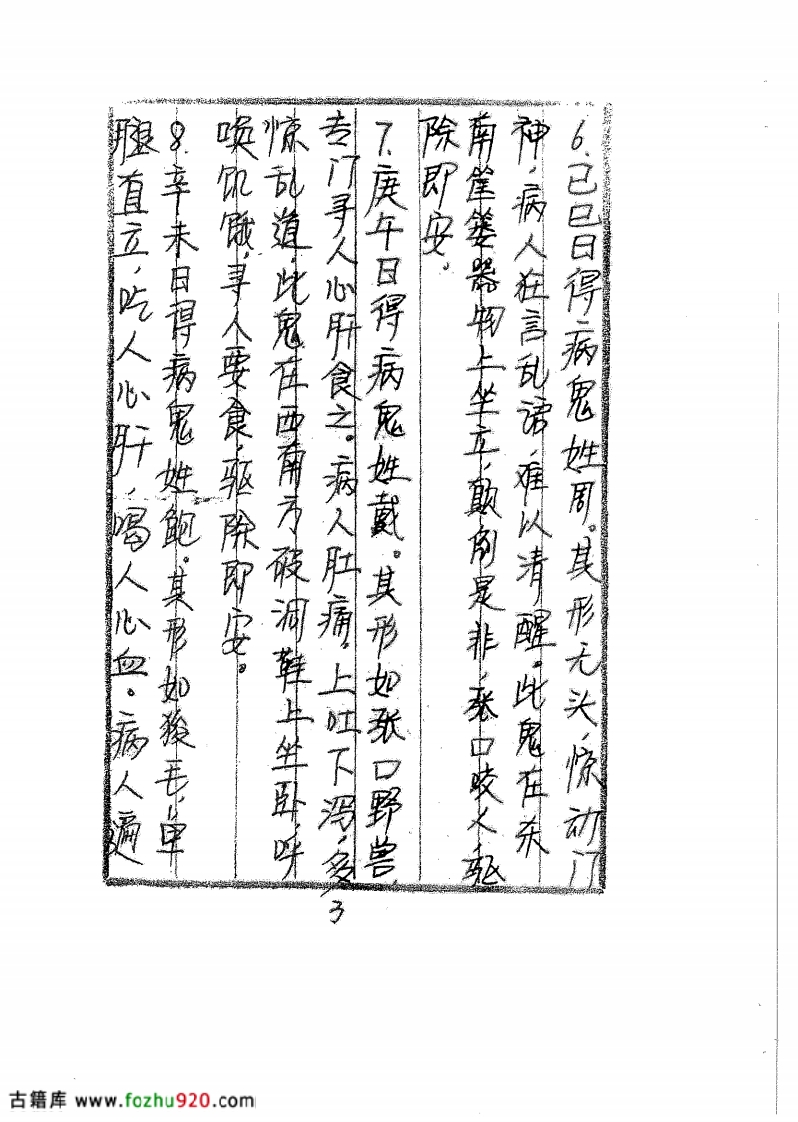 6.己巳日得病鬼姓周。其形无头,惊动门
神,病人狂言乱语,难以清醒。此鬼在东
南筐篓器物上坐立,颠倒是非,张口咬人,驱
除即安。
7.庚午日得病鬼姓戴。其形如张口野兽,
专门寻人心肝食之。病人肚痛,上吐下泻,多
惊乱道,此鬼在西南方破洞鞋上坐卧,呼
唤饥饿,寻人要食,驱除即安。
8.辛未日得病鬼姓鲍。其形如狻毛,单
腿直立,吃人心肝,喝人心血。病人遍
3
古籍库 www.fozhu920.com